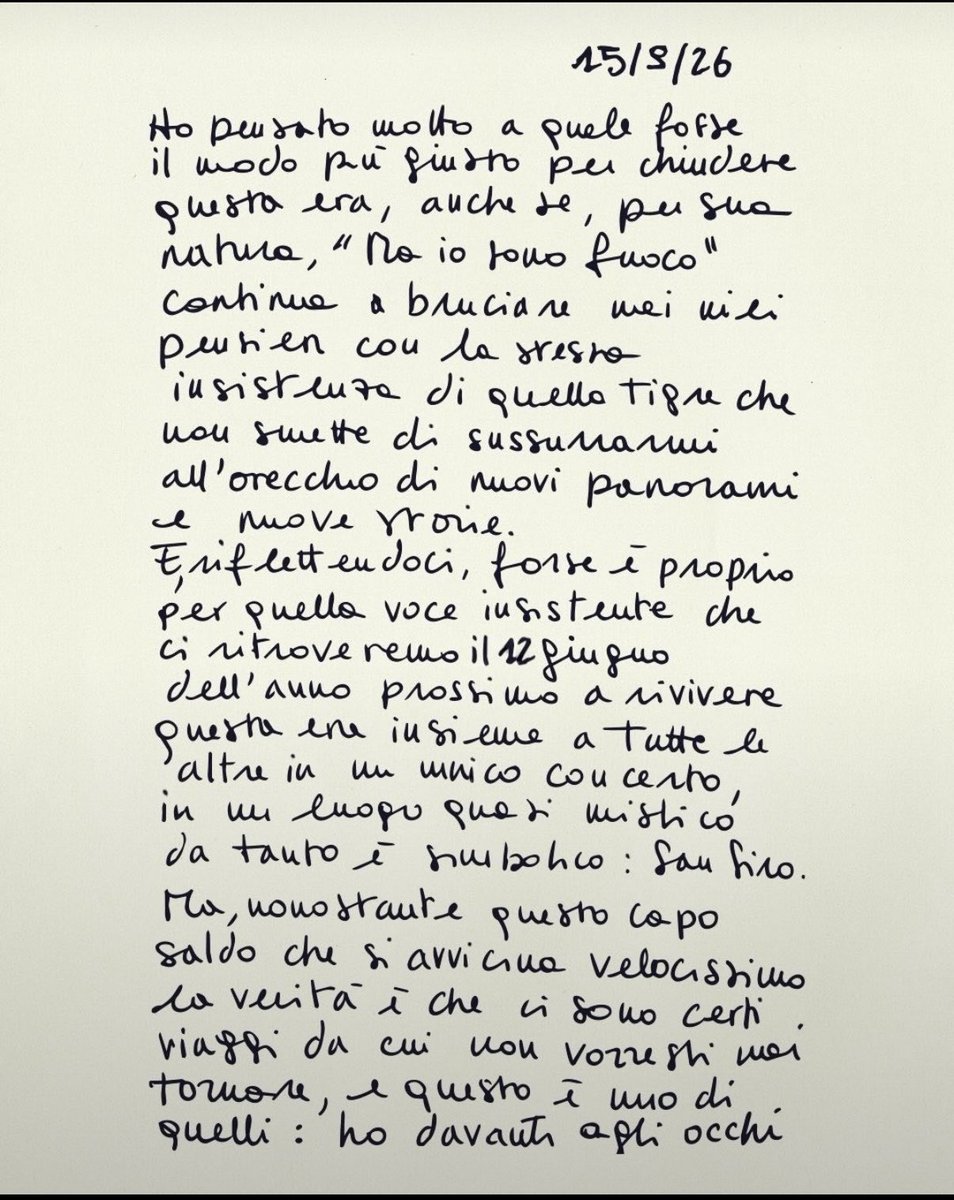 15/9/26
Ho pensato molto a quale fosse
il modo più giusto per chiudere
questa era, anche se, per sua
natura, "Ma io sono fuoco"
continua a bruciare nei miei
pensieri con la stessa
insistenza di quella tigre che
non smette di sussurrarmi
all'orecchio di nuovi panorami
e nuove storie.
E, riflettendoci, forse è proprio
per quella voce insistente che
ci ritroveremo il 12 giugno
dell'anno prossimo a rivivere
questa era insieme a tutte le
altre in un unico concerto,
in un luogo quasi mistico
da tanto è simbolico: San Siro.
Ma, nonostante questo capo
saldo che si avvicina velocissimo
la verità è che ci sono certi
viaggi da cui non vorresti mai
tornare, e questo è uno di
quelli: ho davanti agli occhi